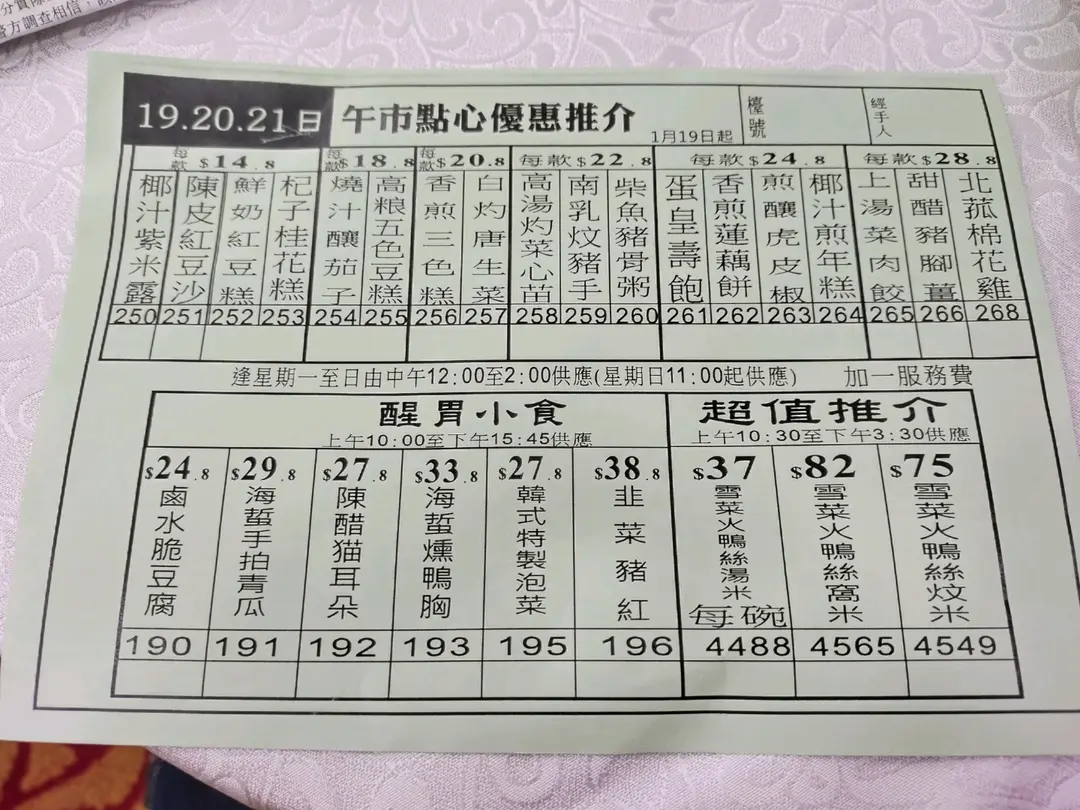 方調查相信，
19.20.21日
午市點心優惠推介
1月19日起
檯號
經手人
每款$14.8
每款$18.8
每款$20.8
每款$22.8
每款$24.8
每款$28.8
椰汁紫米露
陳皮紅豆沙
鮮奶紅豆糕
杞子桂花糕
燒汁釀茄子
高粮五色豆糕
香煎三色糕
白灼唐生菜
高湯灼菜心苗
南乳炆豬手
柴魚豬骨粥
蛋皇壽飽
香煎蓮藕餅
煎釀虎皮椒
椰汁煎年糕
上湯菜肉餃
甜醋豬腳薑
北菰棉花雞
250 251 252 253 254 255 256 257 258 259 260 261 262 263 264 265 266 268
逢星期一至日由中午12:00至2:00供應(星期日11:00起供應) 加一服務費
醒胃小食
上午10:00至下午15:45供應
超值推介
上午10:30至下午3:30供應
$24.8
$29.8
$27.8
$33.8
$27.8
$38.8
$37
$82
$75
鹵水脆豆腐
海蜇手拍青瓜
陳醋猫耳朵
海蜇燻鴨胸
韓式特製泡菜
韭菜豬紅
雪菜火鴨絲湯米
每碗
雪菜火鴨絲窩米
雪菜火鴨絲炆米
190 191 192 193 195 196 4488 4565 4549